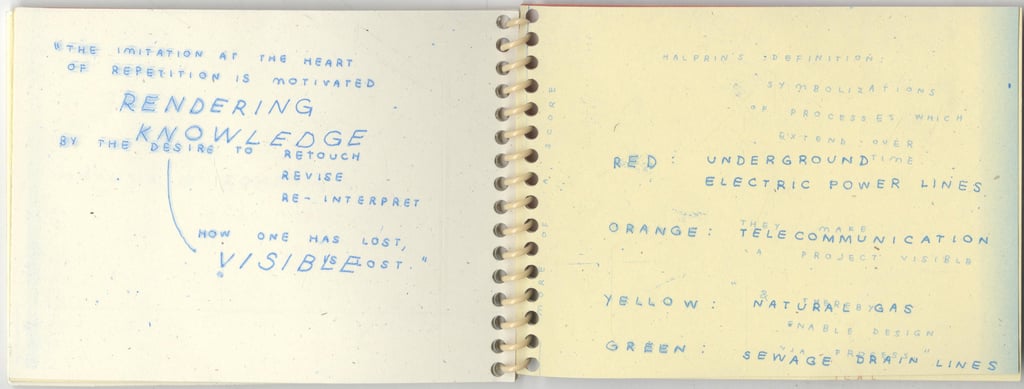 "THE IMITATION AT THE HEART
OF REPETITION IS MOTIVATED
RENDERING
KNOWLEDGE
BY THE DESIRE TO RETOUCH
REVISE
RE-INTERPRET
HOW ONE HAS LOST,
VISIBLE
IS LOST."
MORE OF A SCORE
HALPRIN'S DEFINITION:
SYMBOLIZATIONS
OF PROCESSES WHICH
EXTEND OVER
TIME
RED: UNDERGROUND
ELECTRIC POWER LINES
THEY MAKE
ORANGE: TELECOMMUNICATION
A PROJECT VISIBLE
"& THEREBY
YELLOW: NATURAL GAS
ENABLE DESIGN
VIA PROCESS"
GREEN: SEWAGE DRAIN LINES